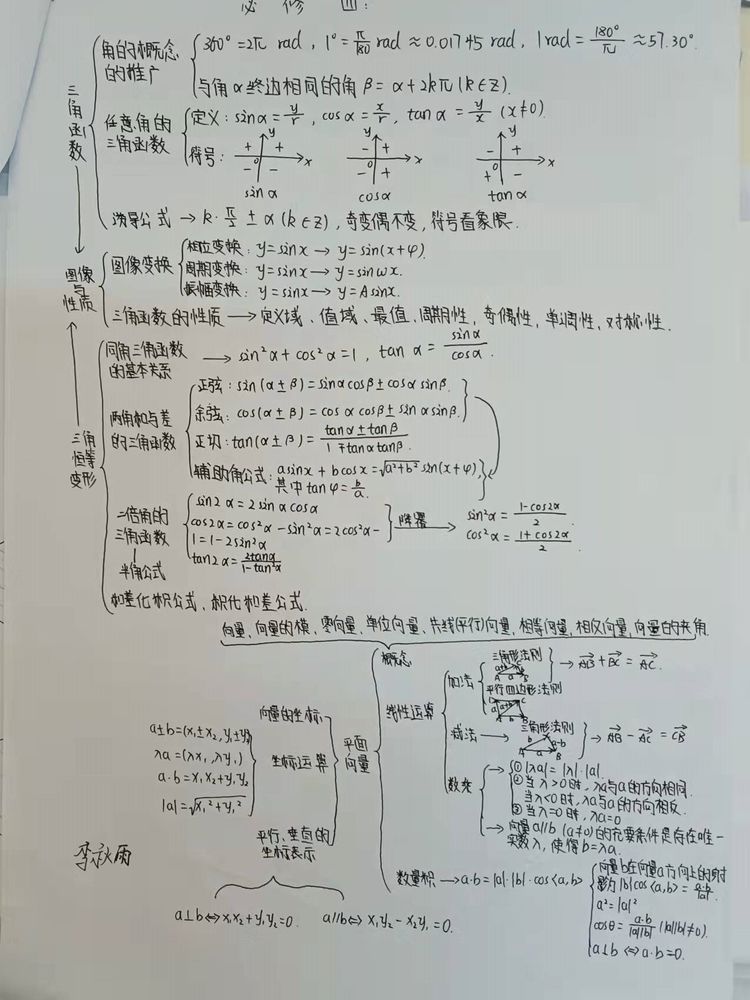 必修四:
三角函数
角的概念的推广
360° = 2π rad, 1° = π/180 rad ≈ 0.01745 rad, 1rad = 180°/π ≈ 57.30°.
与角α终边相同的角 β = α + 2kπ (k∈Z).
任意角的三角函数
定义: sinα = y/r, cosα = x/r, tanα = y/x (x≠0).
符号:
y + + 0 x - -
sinα
y - + 0 x - +
cosα
y - + 0 x + -
tanα
诱导公式 → k·π/2 ± α (k∈Z), 奇变偶不变, 符号看象限.
图像与性质
图像变换
相位变换: y=sinx → y=sin(x+φ).
周期变换: y=sinx → y=sinωx.
振幅变换: y=sinx → y=Asinx.
三角函数的性质 → 定义域、值域、最值、周期性, 奇偶性, 单调性, 对称性.
三角恒等变形
同角三角函数的基本关系 → sin²α + cos²α = 1, tanα = sinα/cosα.
两角和与差的三角函数
正弦: sin(α±β) = sinαcosβ ± cosαsinβ.
余弦: cos(α±β) = cosαcosβ ± sinαsinβ.
正切: tan(α±β) = tanα±tanβ/1∓tanαtanβ.
辅助角公式: asinx + bcosx = √a²+b² sin(x+φ),
其中tanφ = b/a.
二倍角的三角函数
半角公式
sin2α = 2sinαcosα
cos2α = cos²α - sin²α = 2cos²α -
1 = 1 - 2sin²α
tan2α = 2tanα/1-tan²α
降幂 →
sin²α = 1-cos2α/2
cos²α = 1+cos2α/2.
和差化积公式、积化和差公式.
向量、向量的模、零向量、单位向量、共线(平行)向量, 相等向量, 相反向量, 向量的夹角
平面向量
概念
线性运算
加法
三角形法则
平行四边形法则
→ AB + BC = AC
减法 →
三角形法则
→ AB - AC = CB
数乘
① |λa| = |λ|·|a|.
② 当λ>0时, λa与a的方向相同.
当λ<0时, λa与a的方向相反.
③ 当λ=0时, λa=0
→ 向量a∥b (a≠0)的充要条件是存在唯一
实数λ, 使得b=λa.
数量积 → a·b = |a|·|b|·cos<a,b>
向量b在向量a方向上的射
影为|b|cos<a,b> = a·b/|a|.
a² = |a|²
cosθ = a·b/|a||b| (|a||b|≠0).
a⊥b ⇔ a·b=0.
向量的坐标
坐标运算
a±b=(x₁±x₂, y₁±y₂)
λa = (λx₁, λy₁)
a·b = x₁x₂+y₁y₂
|a| = √x₁²+y₁²
平行、垂直的
坐标表示
a⊥b ⇔ x₁x₂+y₁y₂=0. a∥b ⇔ x₁y₂-x₂y₁=0.
李秋雨